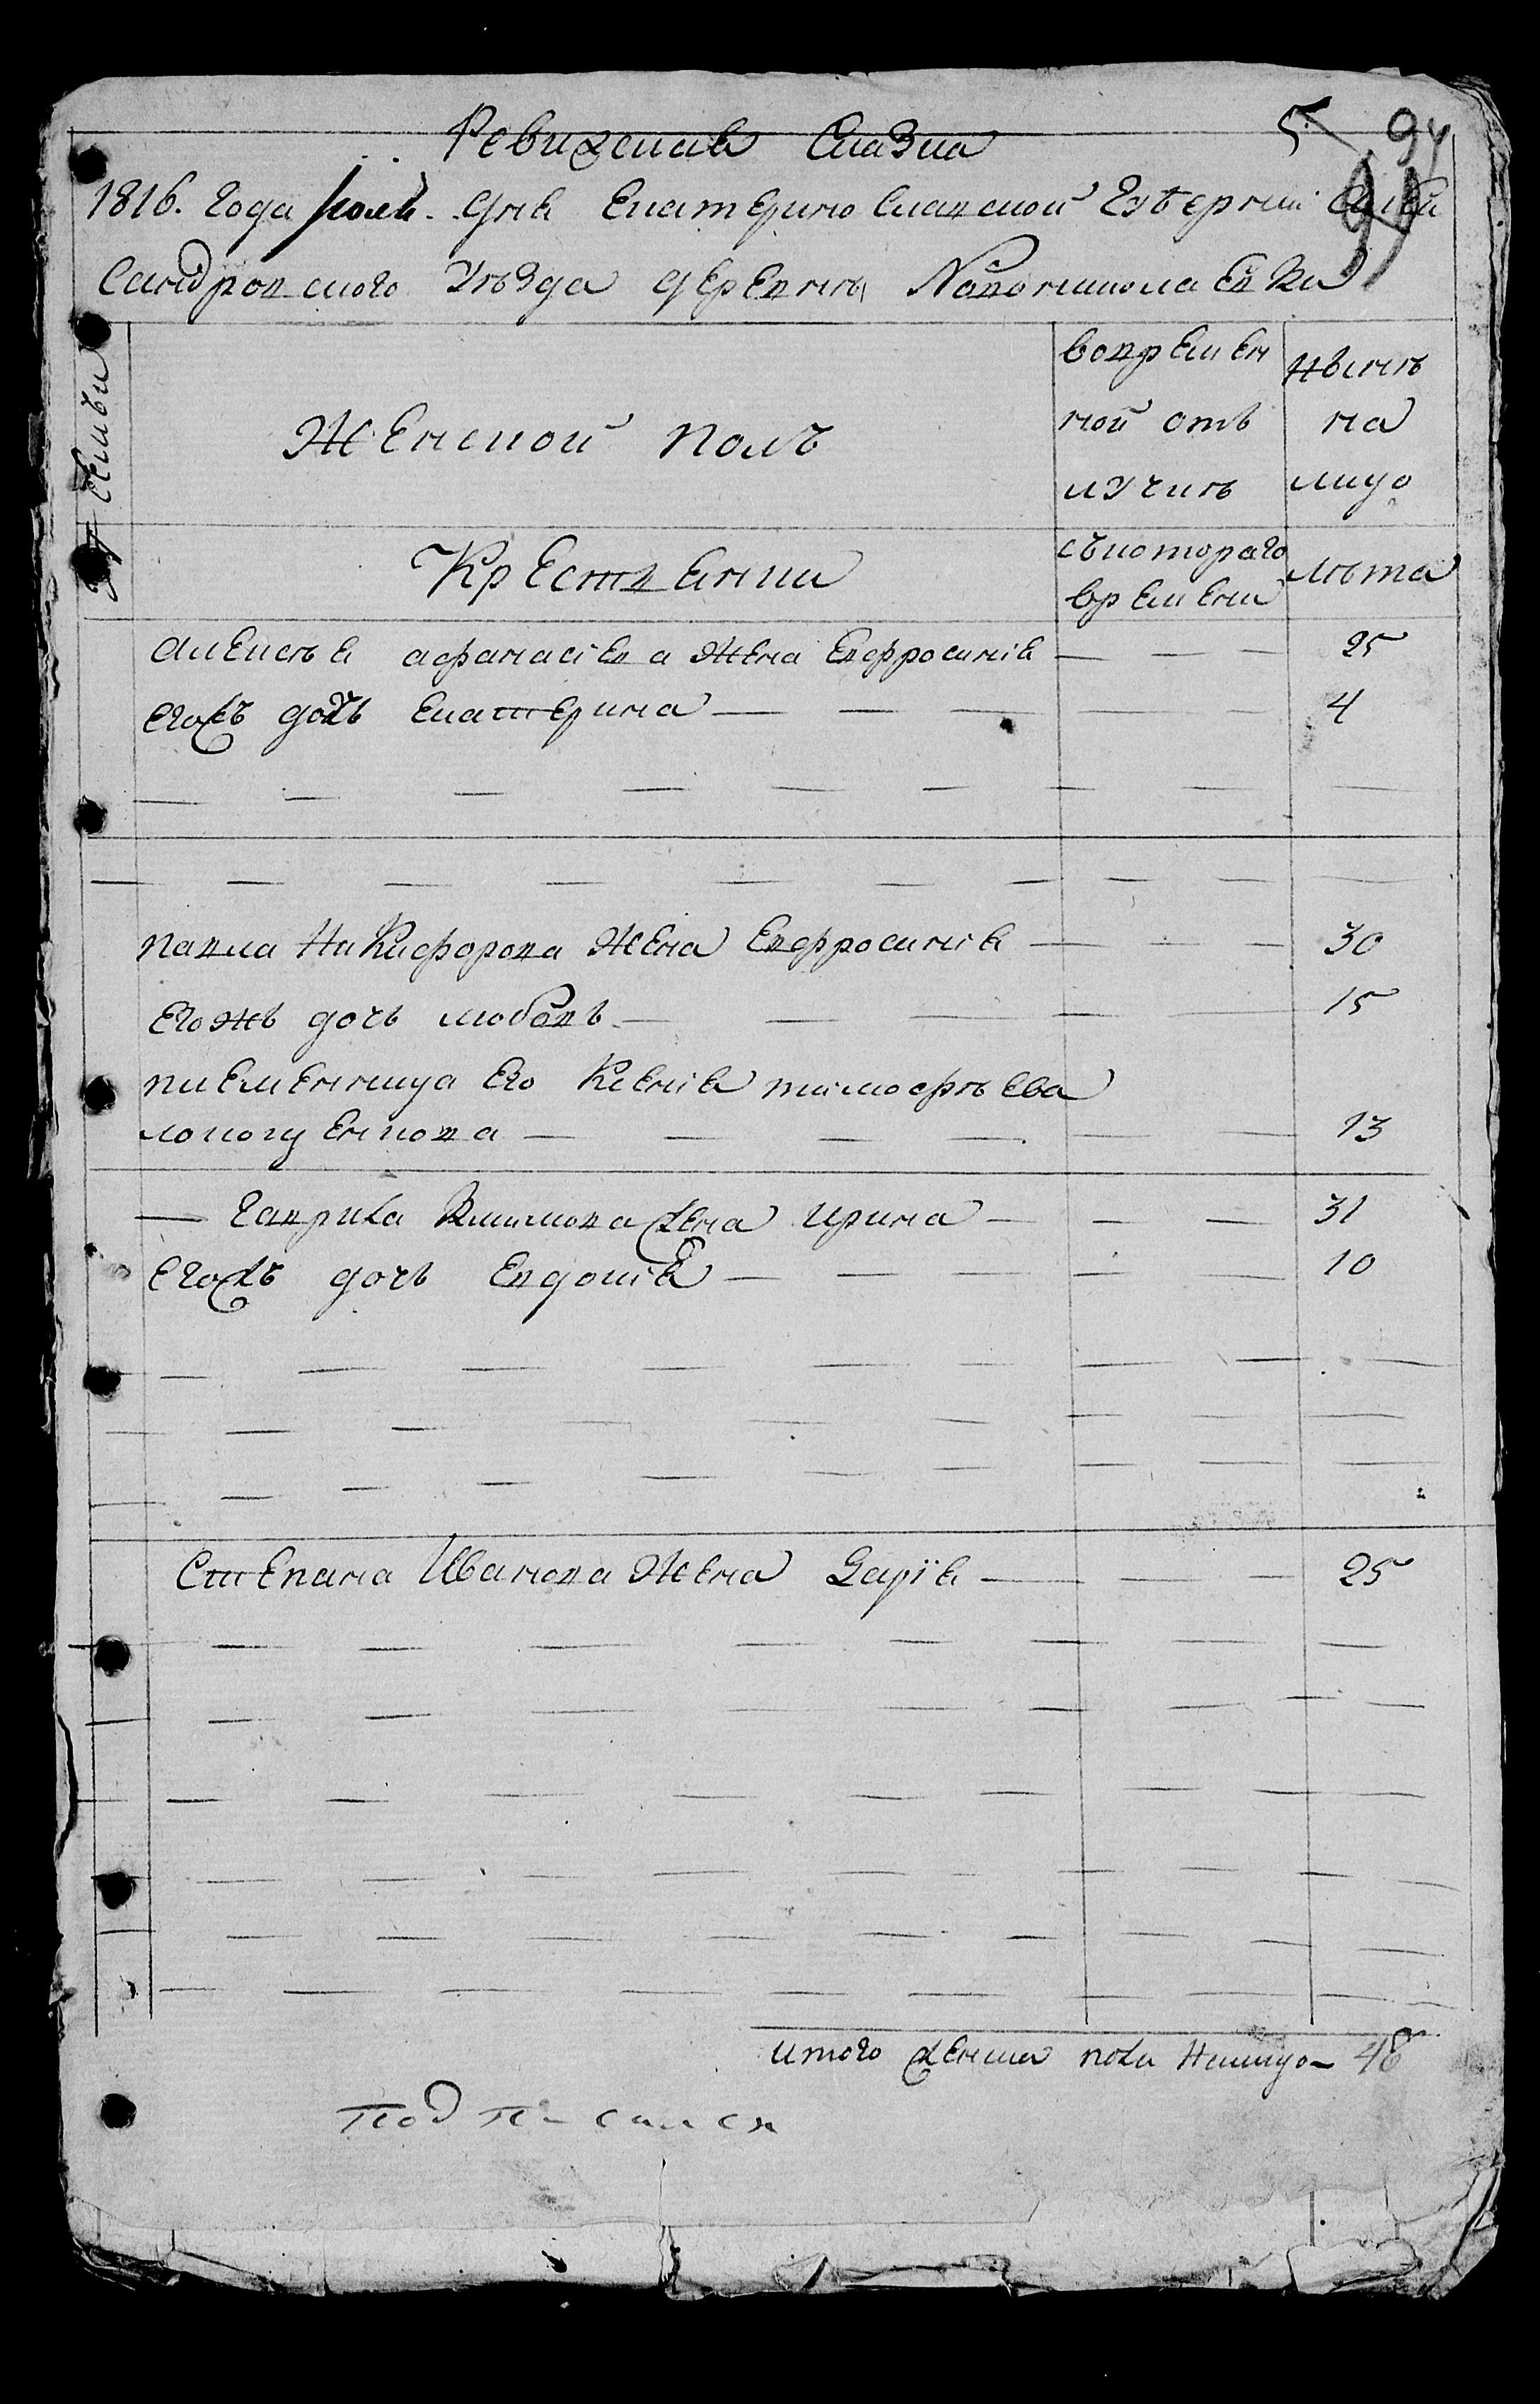 Ревижская Сказка
5 94
1816. Года Июля дня Екатеринославской Губерніи Алек
сандровскаго Уѣзда деревни Новониколаевки
Семьи
Женской полъ
вовремен
ной отъ
лучкѣ
нынѣ
на
лицо
Крестьянки
съкотораго
времени
лѣта
Алексѣя афанасіева Жена Евфросинія — — — 25
Егожъ дочь Екатерина — — — 4
павла Никифорова Жена Евфросинія — — — 30
Егожъ дочь любовь — — — 15
племенница Его Ксенія тимофѣева
— — — 13
— Гаврила Климова жена ирина — — — 31
Егожъ дочь Евдокія — — — 10
Степана Иванова Жена Дарія — — — 25
итого женска пола Налицо —
подписался